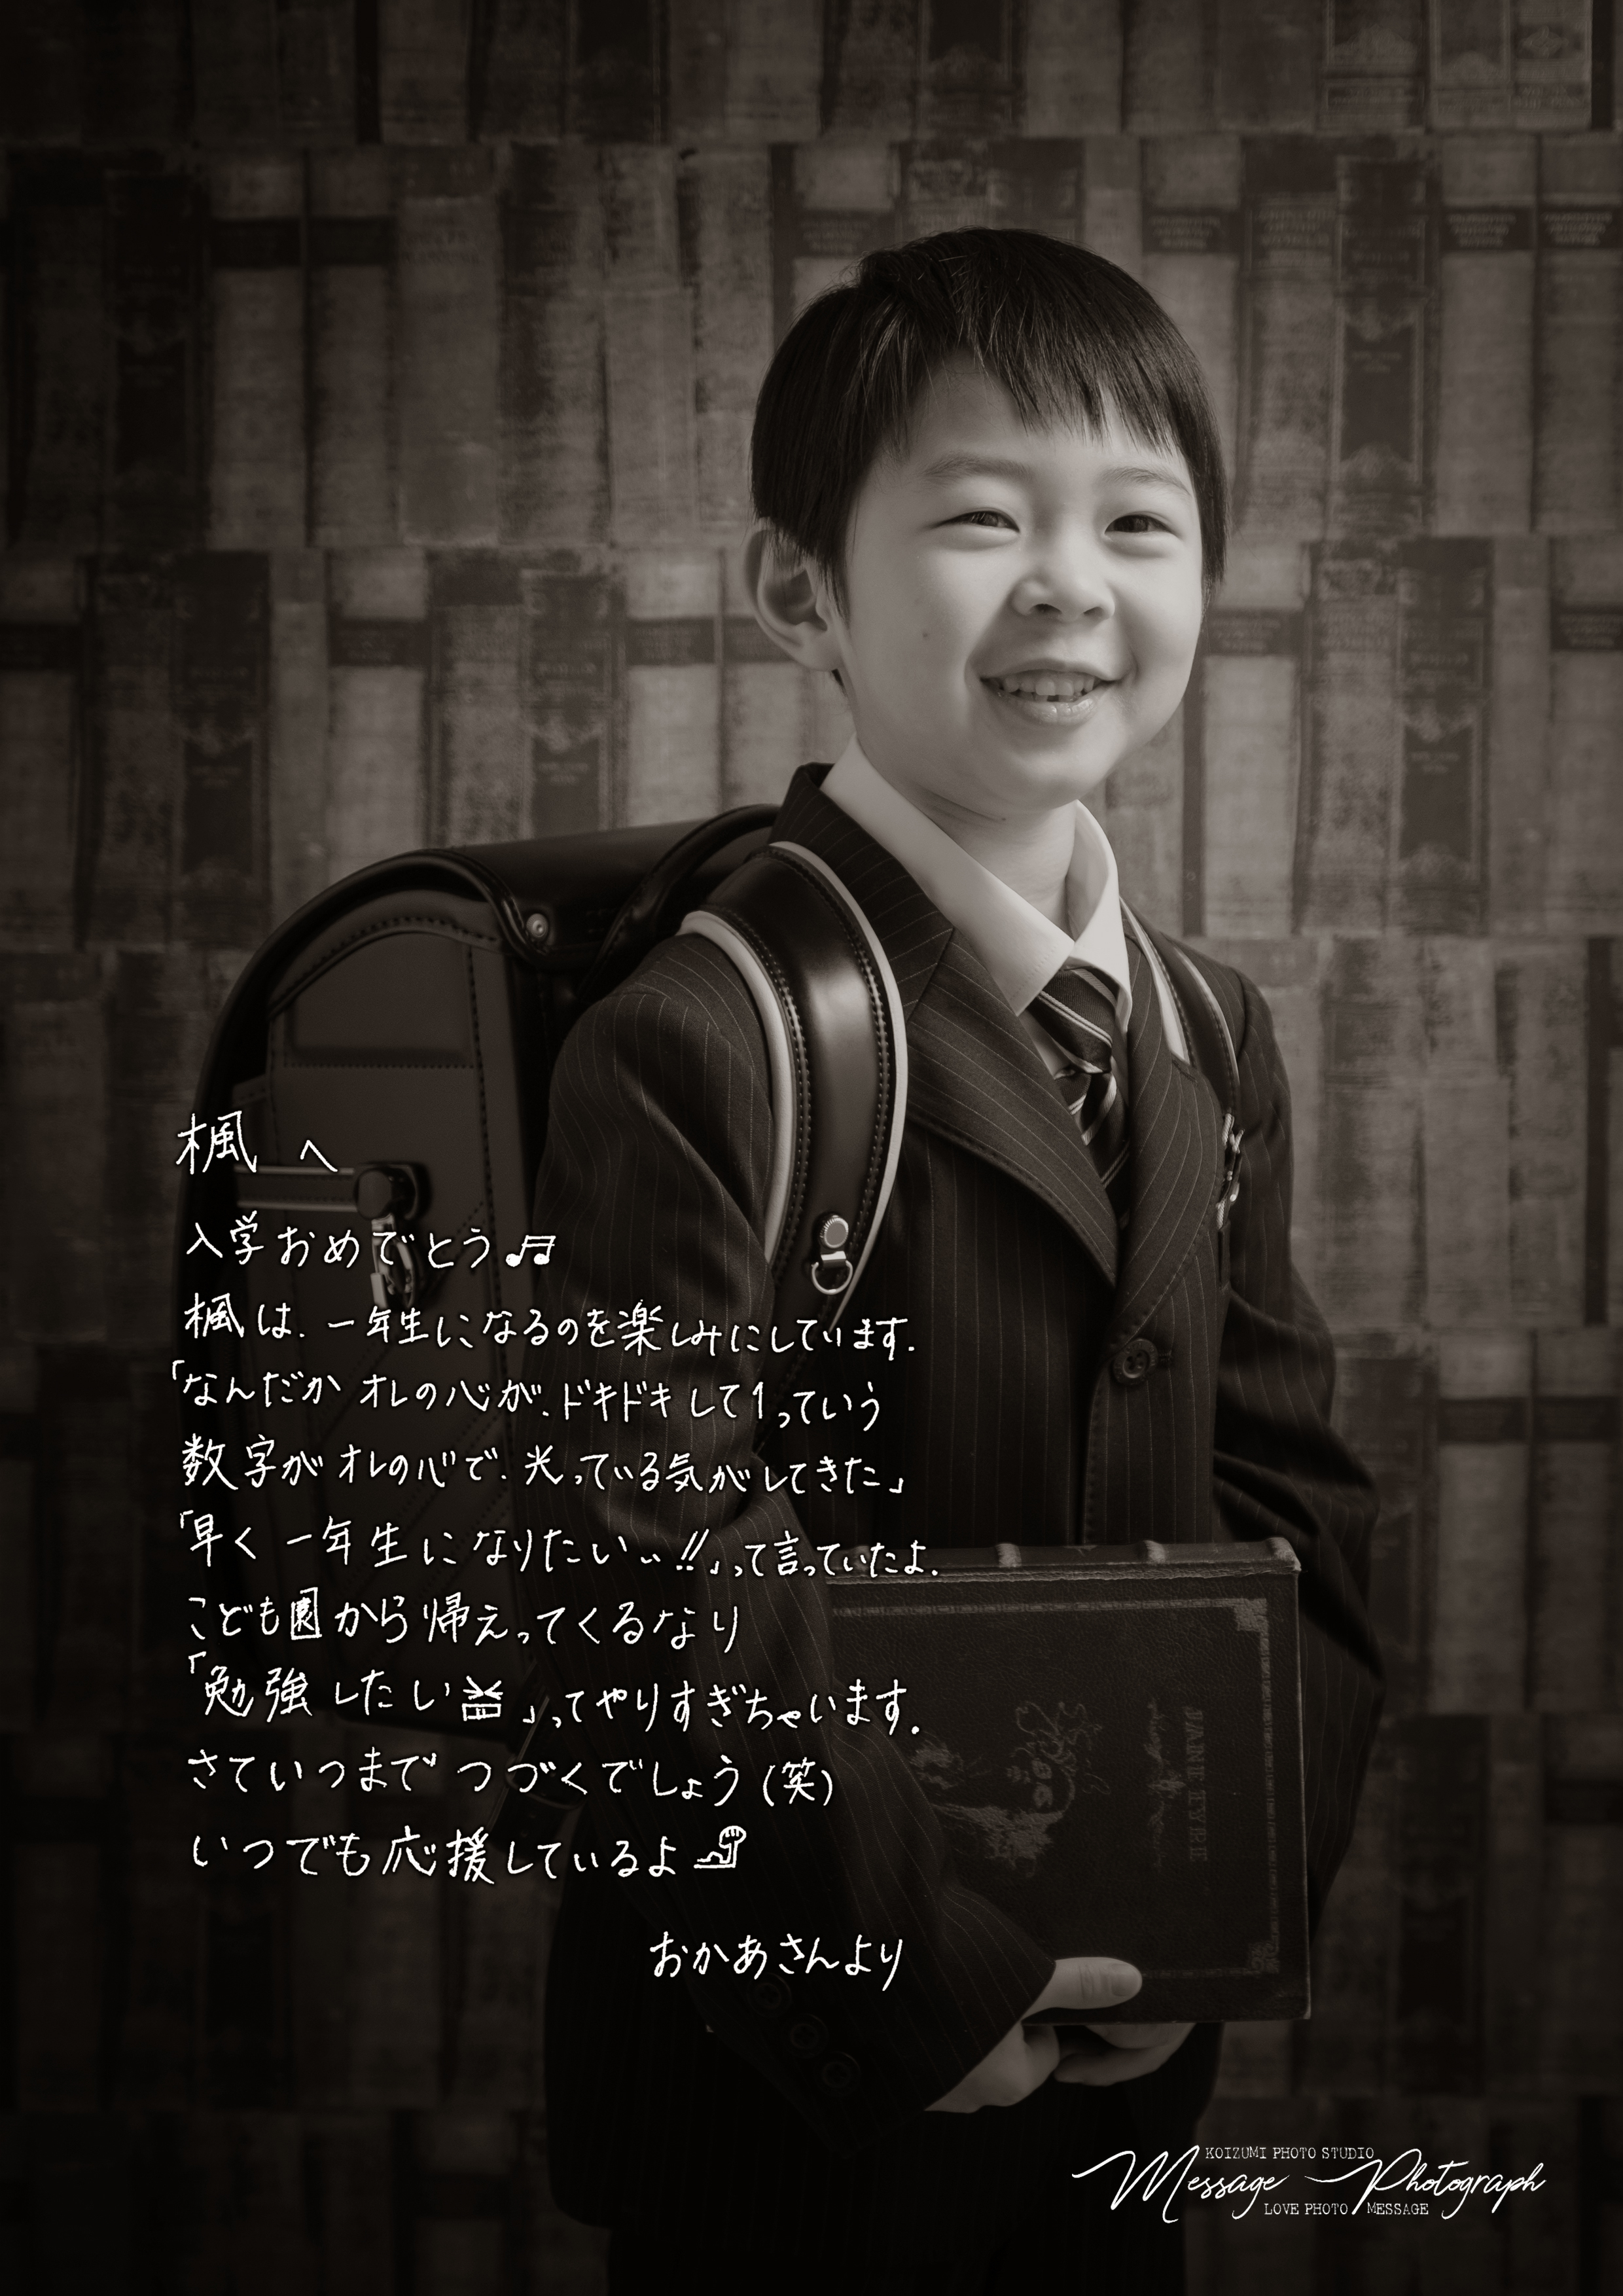 楓 へ
入学おめでとう♫
楓は、一年生になるのを楽しみにしています。
「なんだか オレの心が、ドキドキして1っていう
数字がオレの心で、光っている気がしてきた」
「早く 一年生になりたいぃぃ!!」って言っていたよ。
こども園から帰えってくるなり
「勉強したい」ってやりすぎちゃいます。
さていつまで つづくでしょう(笑)
いつでも応援しているよ
おかあさんより
JANE EYRE
KOIZUMI PHOTO STUDIO
Message Photograph
LOVE PHOTO MESSAGE